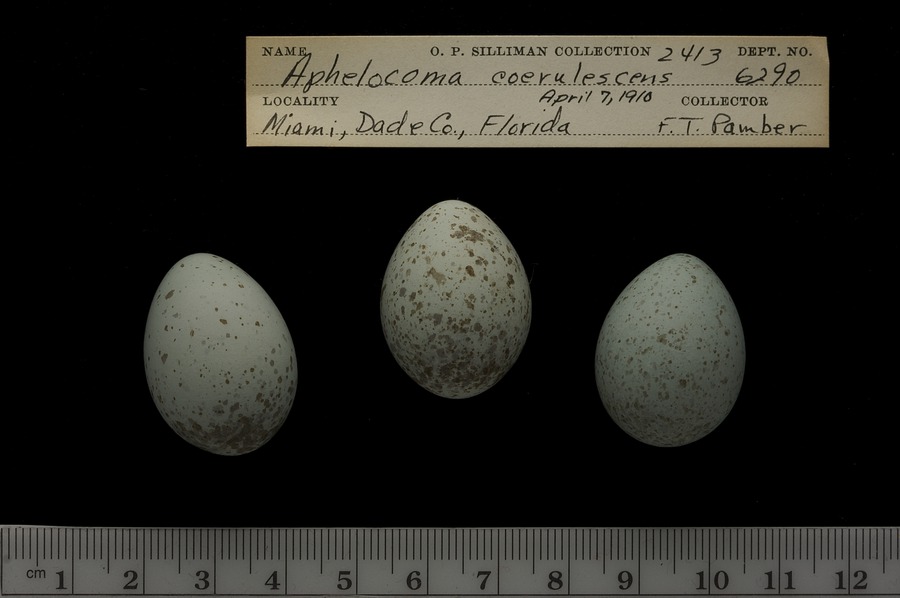 NAME O. P. SILLIMAN COLLECTION 2413 DEPT. NO.
Aphelocoma coerulescens 6290
LOCALITY April 7, 1910 COLLECTOR
Miami, Dade Co., Florida F. T. Pamber
cm 1 2 3 4 5 6 7 8 9 10 11 12